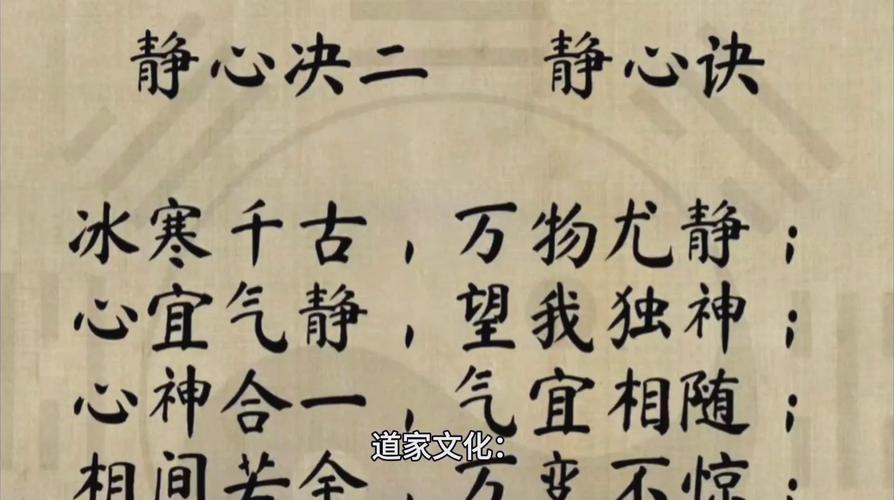 静心决二 静心诀
冰寒千古，万物尤静；
心宜气静，望我独神；
心神合一，气宜相随；
相间若余，万变不惊；
道家文化：